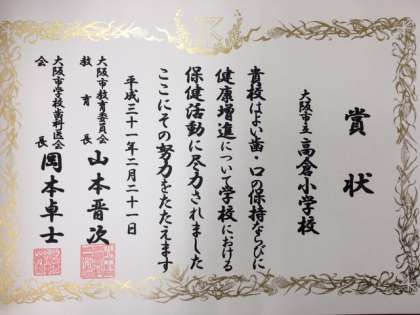 賞状
大阪市立 高倉小学校
貴校はよい歯・口の保持ならびに
健康増進について学校における
保健活動に尽力されました
ここにその努力をたたえます
平成三十一年二月二十一日
大阪市教育委員会
教育長 山本晋次
大阪市学校歯科医会
会長 岡本卓士